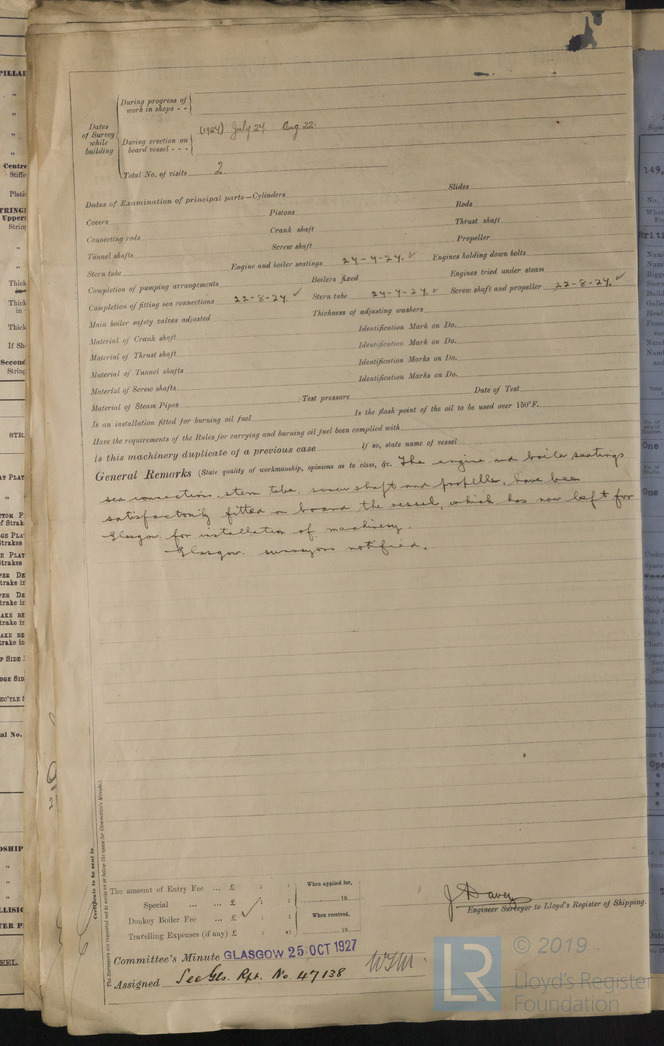 During progress of
work in shops - -
Dates
of Survey
while
building
During erection on
board vessel - - -
(1924) July 24 Aug 22
Total No. of visits 2.
Dates of Examination of principal parts—Cylinders Slides
Covers Pistons Rods
Connecting rods Crank shaft Thrust shaft
Tunnel shafts Screw shaft Propeller
Stern tube Engine and boiler seatings 24-4-24. ✓ Engines holding down bolts
Completion of pumping arrangements Boilers fixed Engines tried under steam
Completion of fitting sea connections 22-8-24 ✓ Stern tube 24-4-24. ✓ Screw shaft and propeller 22-8-24. ✓
Main boiler safety valves adjusted Thickness of adjusting washers
Material of Crank shaft Identification Mark on Do.
Material of Thrust shaft Identification Mark on Do.
Material of Tunnel shafts Identification Marks on Do.
Material of Screw shafts Identification Marks on Do.
Material of Steam Pipes Test pressure Date of Test
Is an installation fitted for burning oil fuel Is the flash point of the oil to be used over 150°F.
Have the requirements of the Rules for carrying and burning oil fuel been complied with
Is this machinery duplicate of a previous case If so, state name of vessel
General Remarks (State quality of workmanship, opinions as to class, &c. The engine and boiler seatings
sea connections, stern tube, screw shaft and propeller, have been
satisfactorily fitted on board the vessel, which has now left for
Glasgow for installation of machinery.
Glasgow surveyors notified.
Certificate to be sent to
The Surveyors are requested not to write on or below the space for Committee's Minute.
The amount of Entry Fee ... £ : :
Special ... ... £ : :
Donkey Boiler Fee ... £ : :
Travelling Expenses (if any) £ : :
When applied for,
19
When received,
19
J Davey
Engineer Surveyor to Lloyd's Register of Shipping.
Committee's Minute GLASGOW 25 OCT 1927
Assigned See Gls. Rpt. No. 47138
© 2019
LR
Lloyd's Register
Foundation